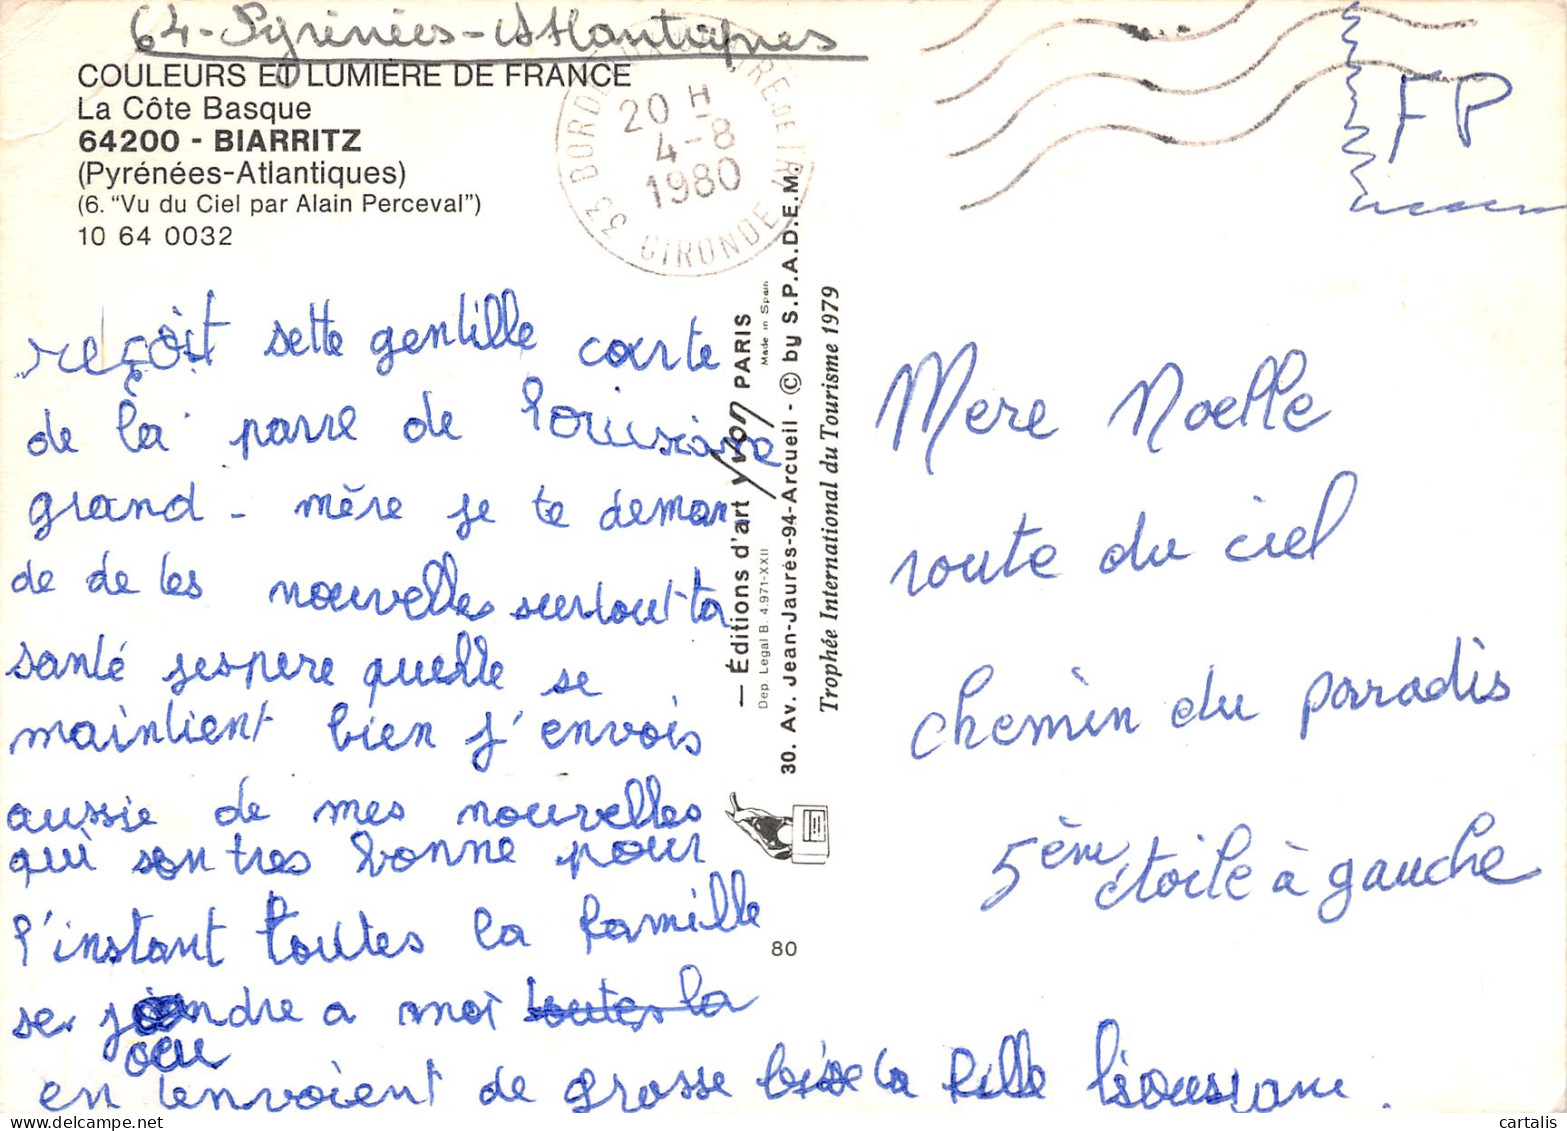 64-Pyrénées-Atlantiques
COULEURS ET LUMIÈRE DE FRANCE
La Côte Basque
64200 - BIARRITZ
(Pyrénées-Atlantiques)
(6. "Vu du Ciel par Alain Perceval")
10 64 0032
20 H
4-8
1980
33 BORDEAUX
GIRONDE
FP
reçoit sette gentille carte
de la parre de
grand-mère je te deman
de de tes nouvelles surtout ta
santé jespere quelle se
maintient bien j'envois
aussie de mes nouvelles
qui son tres bonne pour
l'instant toutes la famille
se joindre a moi toutes la
en t'envoient de grosse bise la fille
— Éditions d'art yvon PARIS
Made in Spain
Dep. Legal B. 4.971-XXII
30. Av. Jean-Jaurès-94-Arcueil - © by S.P.A.D.E.M.
Trophée International du Tourisme 1979
80
Mere Noelle
route du ciel
chemin du paradis
5ème étoile à gauche
cartalis